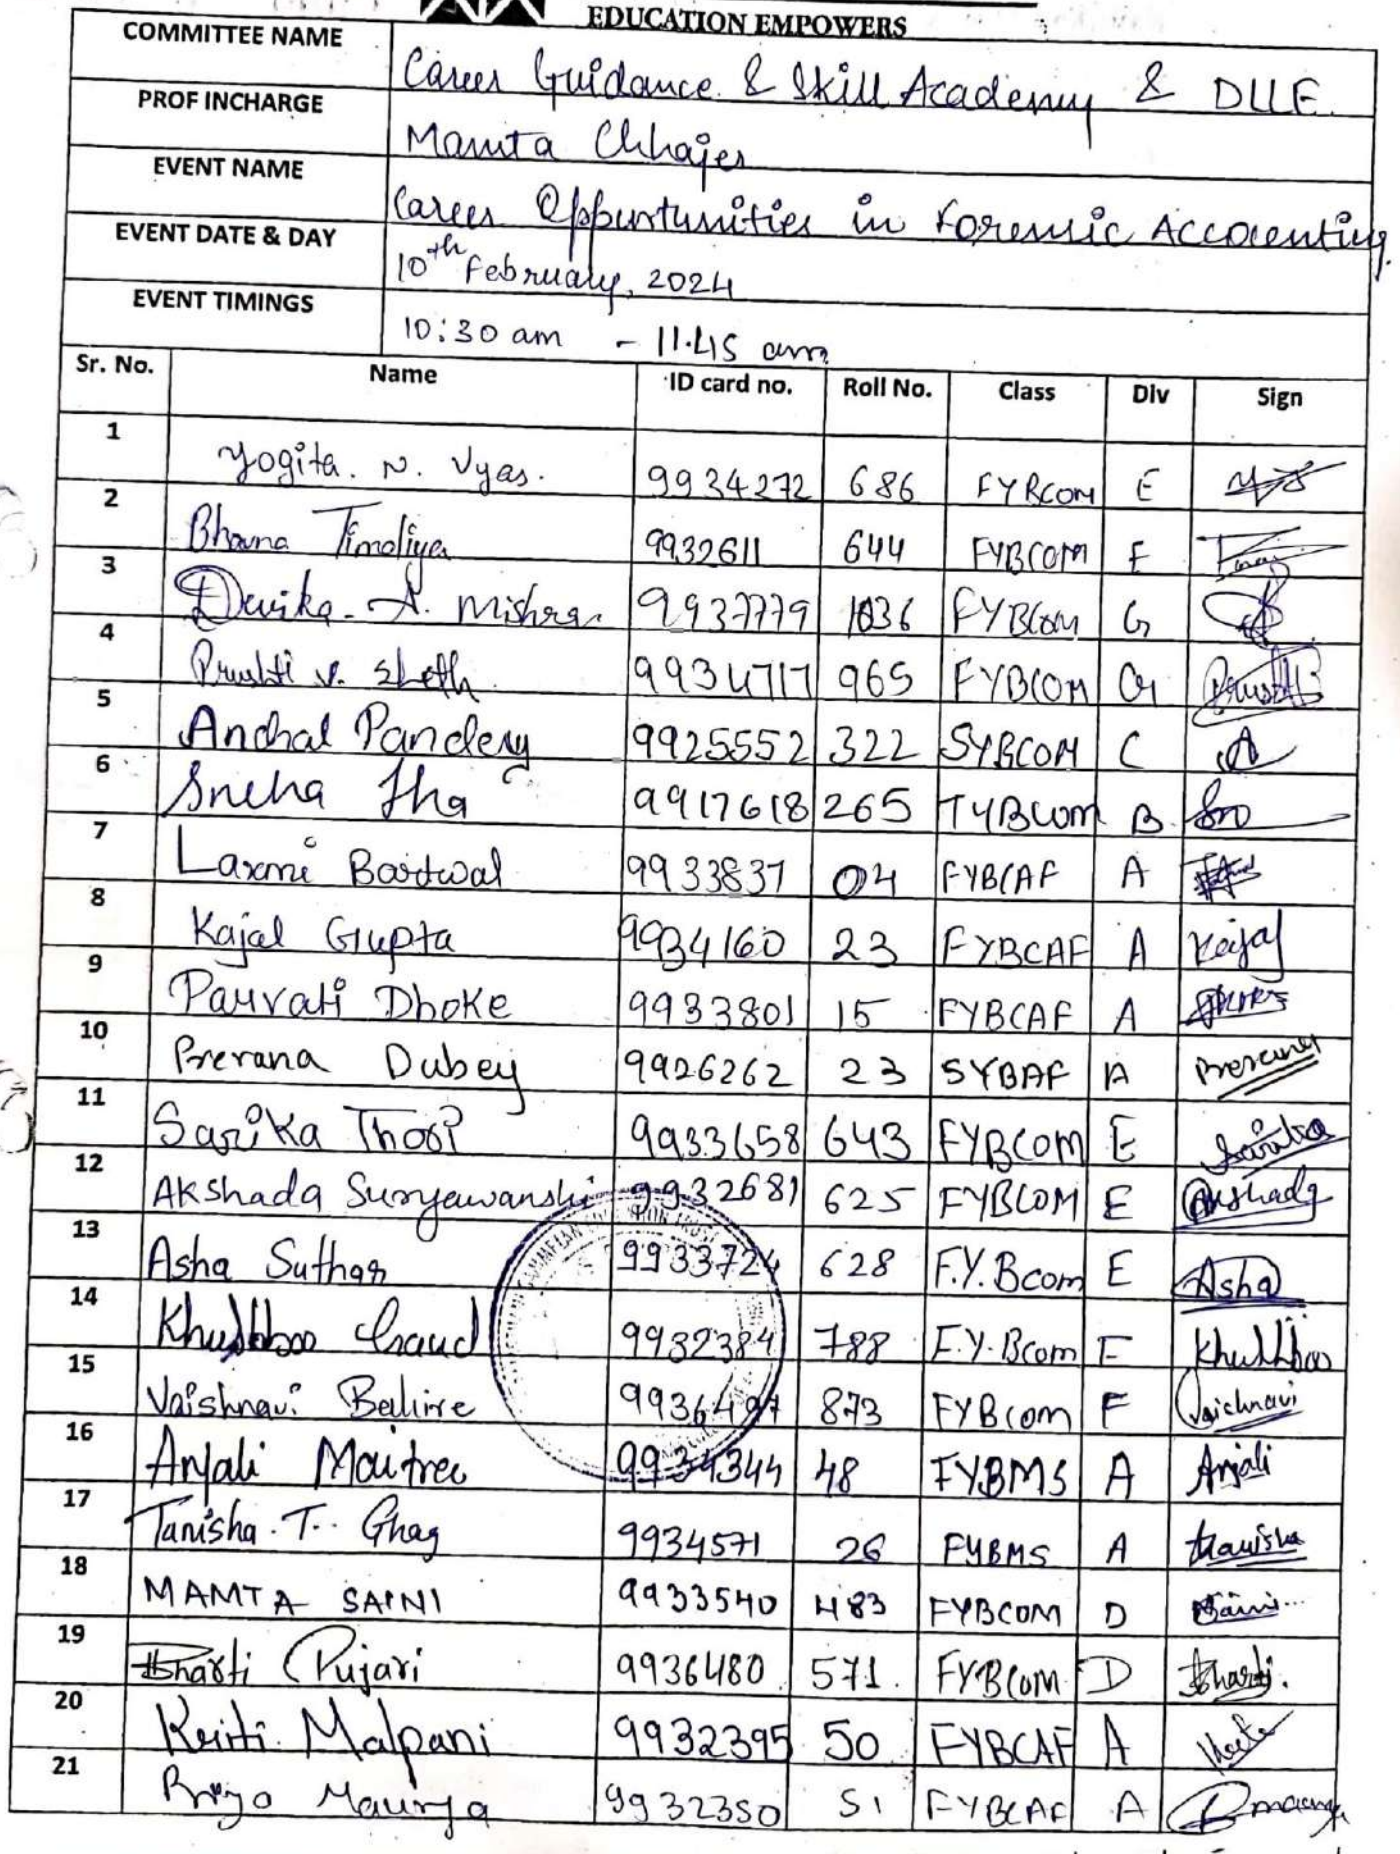 EDUCATION EMPOWERS
COMMITTEE NAME Career Guidance & Skill Academy & DLLE
PROF INCHARGE Mamta Chhajer
EVENT NAME Career Oppurtunities in Forensic Accounting
EVENT DATE & DAY 10th February, 2024
EVENT TIMINGS 10:30 am - 11.45 am
Sr. No. Name ID card no. Roll No. Class Div Sign
1 Yogita. N. Vyas. 9934272 686 FYBCOM E
2 Bhavna Timaliya 9932611 644 FYBCOM E
3 Devika A. Mishra 9937779 1036 FYBCOM G
4 Prushti v. Sheth 9934717 965 FYBCOM G
5 Anchal Pandey 9925552 322 SYBCOM C
6 Sneha Jha 9917618 265 TYBCOM B
7 Laxmi 9933837 04 FYBCAF A
8 Kajal Gupta 9934160 23 FYBCAF A Kajal
9 Parvati Dhoke 9933801 15 FYBCAF A
10 Prerana Dubey 9926262 23 SYBAF A Prerana
11 Sarika Thori 9933658 643 FYBCOM E Sarika
12 Akshada Suryawanshi 9932681 625 FYBCOM E Akshada
13 Asha Suthar 9933724 628 F.Y. Bcom E Asha
14 Khushboo 9932384 788 F.Y. Bcom F Khushboo
15 Vaishnavi 9936497 873 FYBCom F Vaishnavi
16 Anjali Maitree 9934344 48 FYBMS A Anjali
17 Tanisha. T. Ghag 9934571 26 FYBMS A Tanisha
18 MAMTA SAINI 9933540 483 FYBCOM D Saini
19 Bharti Pujari 9936480 571. FYBCOM D Bharti.
20 Kriti Malpani 9932395 50 FYBCAF A
21 Maurya 9932350 51 FYBCAF A